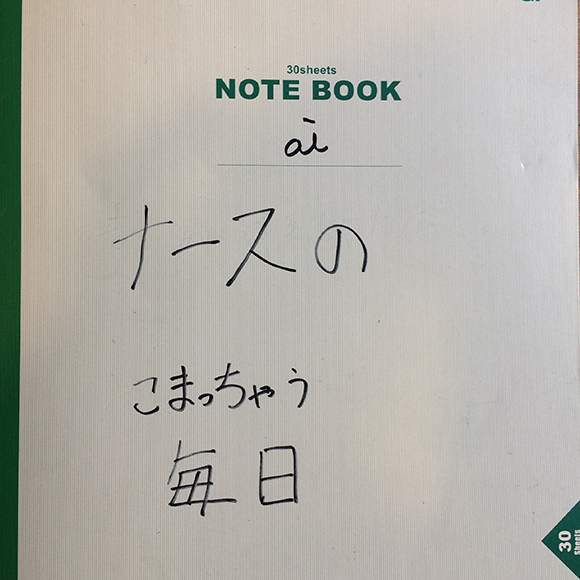 30sheets
NOTE BOOK
ai
ナースの
こまっちゃう
毎日
30
Sheets